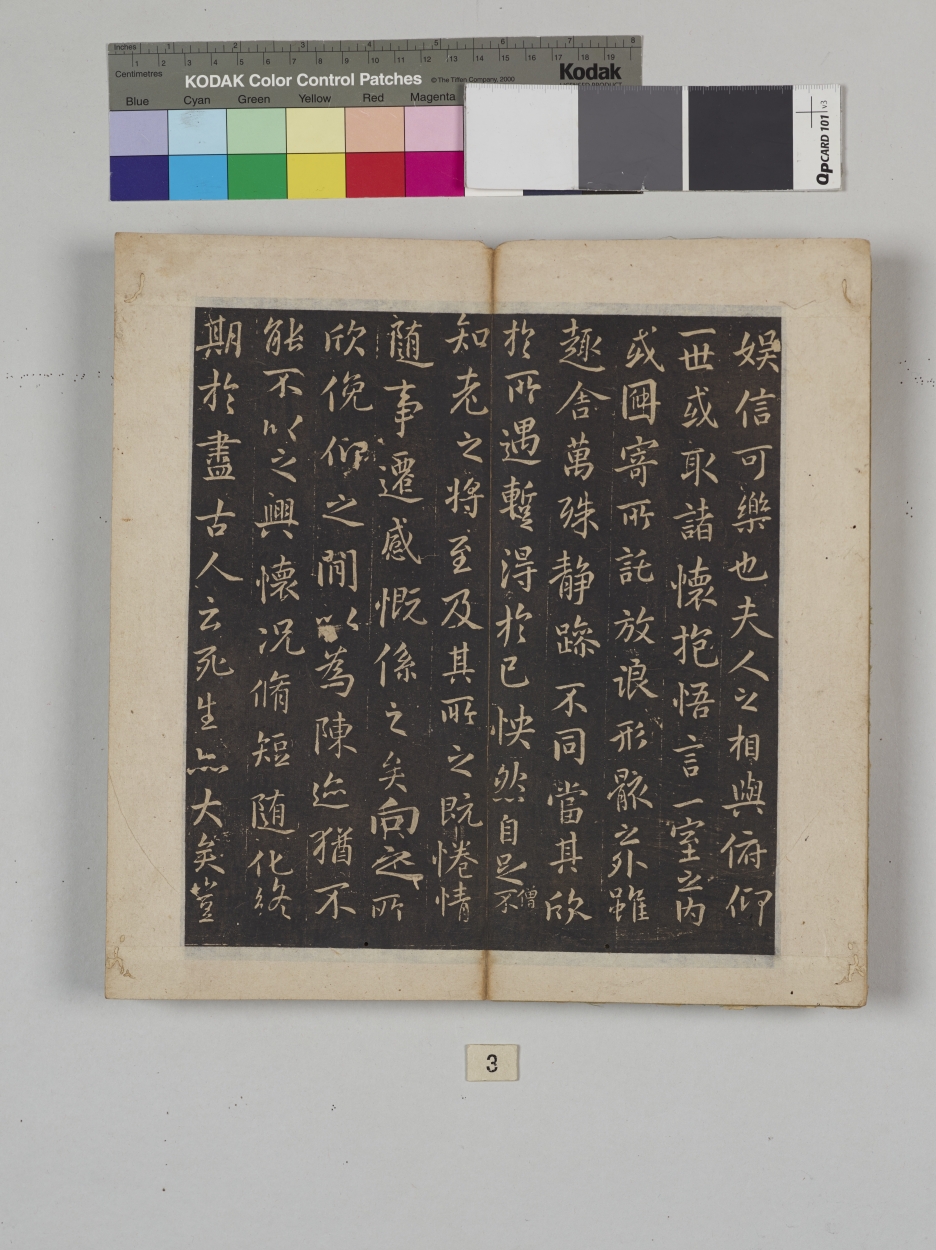 Inches 1 2 3 4 5 6 7 8
1 2 3 4 5 6 7 8 9 10 11 12 13 14 15 16 17 18 19
Centimetres
KODAK Color Control Patches © The Tiffen Company, 2000 Kodak
Blue Cyan Green Yellow Red Magenta
QPCARD 101 v3
娛信可樂也夫人之相與俯仰
一世或取諸懷抱悟言一室之內
或因寄所託放浪形骸之外雖
趣舍萬殊静躁不同當其欣
於所遇暫得於己怏然自足不
僧
知老之將至及其所之既惓情
隨事遷感慨係之矣向之所
欣俛仰之閒以為陳迹猶不
能不以之興懷況脩短隨化終
期於盡古人云死生亦大矣豈
3